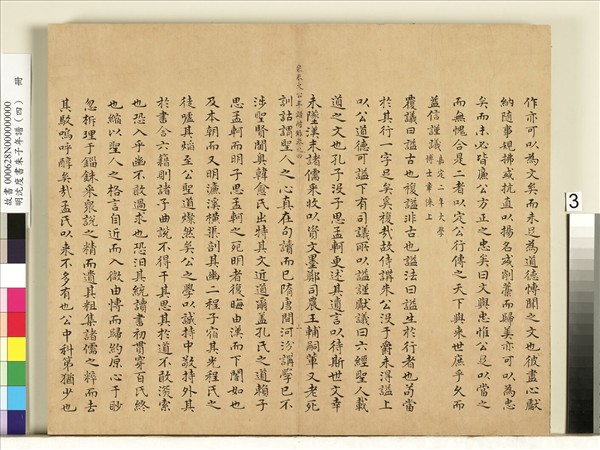 作亦可以為文矣而未足為道德博聞之文也彼盡心獻
納隨事規拂或抗直以揚名或削藁而歸美亦可以為忠
矣而未必皆廉公方正之忠矣曰文與忠惟公足以當之
而無愧合是二者以定公行傳之天下與来世庶乎久而
益信謹議 嘉定二年太學
博士章徠上
覆議曰諡古也複諡非古也諡法曰諡生於行者也苟當
於其行一字足矣奚複哉故侍講朱公沒于爵未得諡上
以公道德可諡下有司議所以諡謹獻議曰六經聖人載
道之文也孔子沒子思孟軻更述其遺言以待斯世文幸
未墜漢末諸儒采收以資文墨鄭司農王輔嗣輩又老死
宋朱文公年譜附錄卷之四
三
訓詁謂聖人之心真在句讀而已隋唐間河汾講學已不
涉聖賢閫奧韓愈氏出特其文近道爾蓋孔氏之道賴子
思孟軻而明子思孟軻之死明者復晦由漢而下闇如也
及本朝而又明濂溪橫渠剖其幽二程子宿其光程氏之
徒噓其焰至公聖道燦然矣公之學以誠持中敬持外其
於書合六籍則諸子曲說不得干其思其於道不敢深索
也恐入乎幽不敢過求也恐汨其統讀書初貫穿百氏終
也縮以聖人之格言自近而入微由博而歸約原心于眇
忽析理于錙銖采衆說之精而遺其粗集諸儒之粹而去
其駁嗚呼醇矣哉孟氏以来不多有也公中科第猶少也
故書 000628N000000000
明沈度書朱子年譜（四）
3